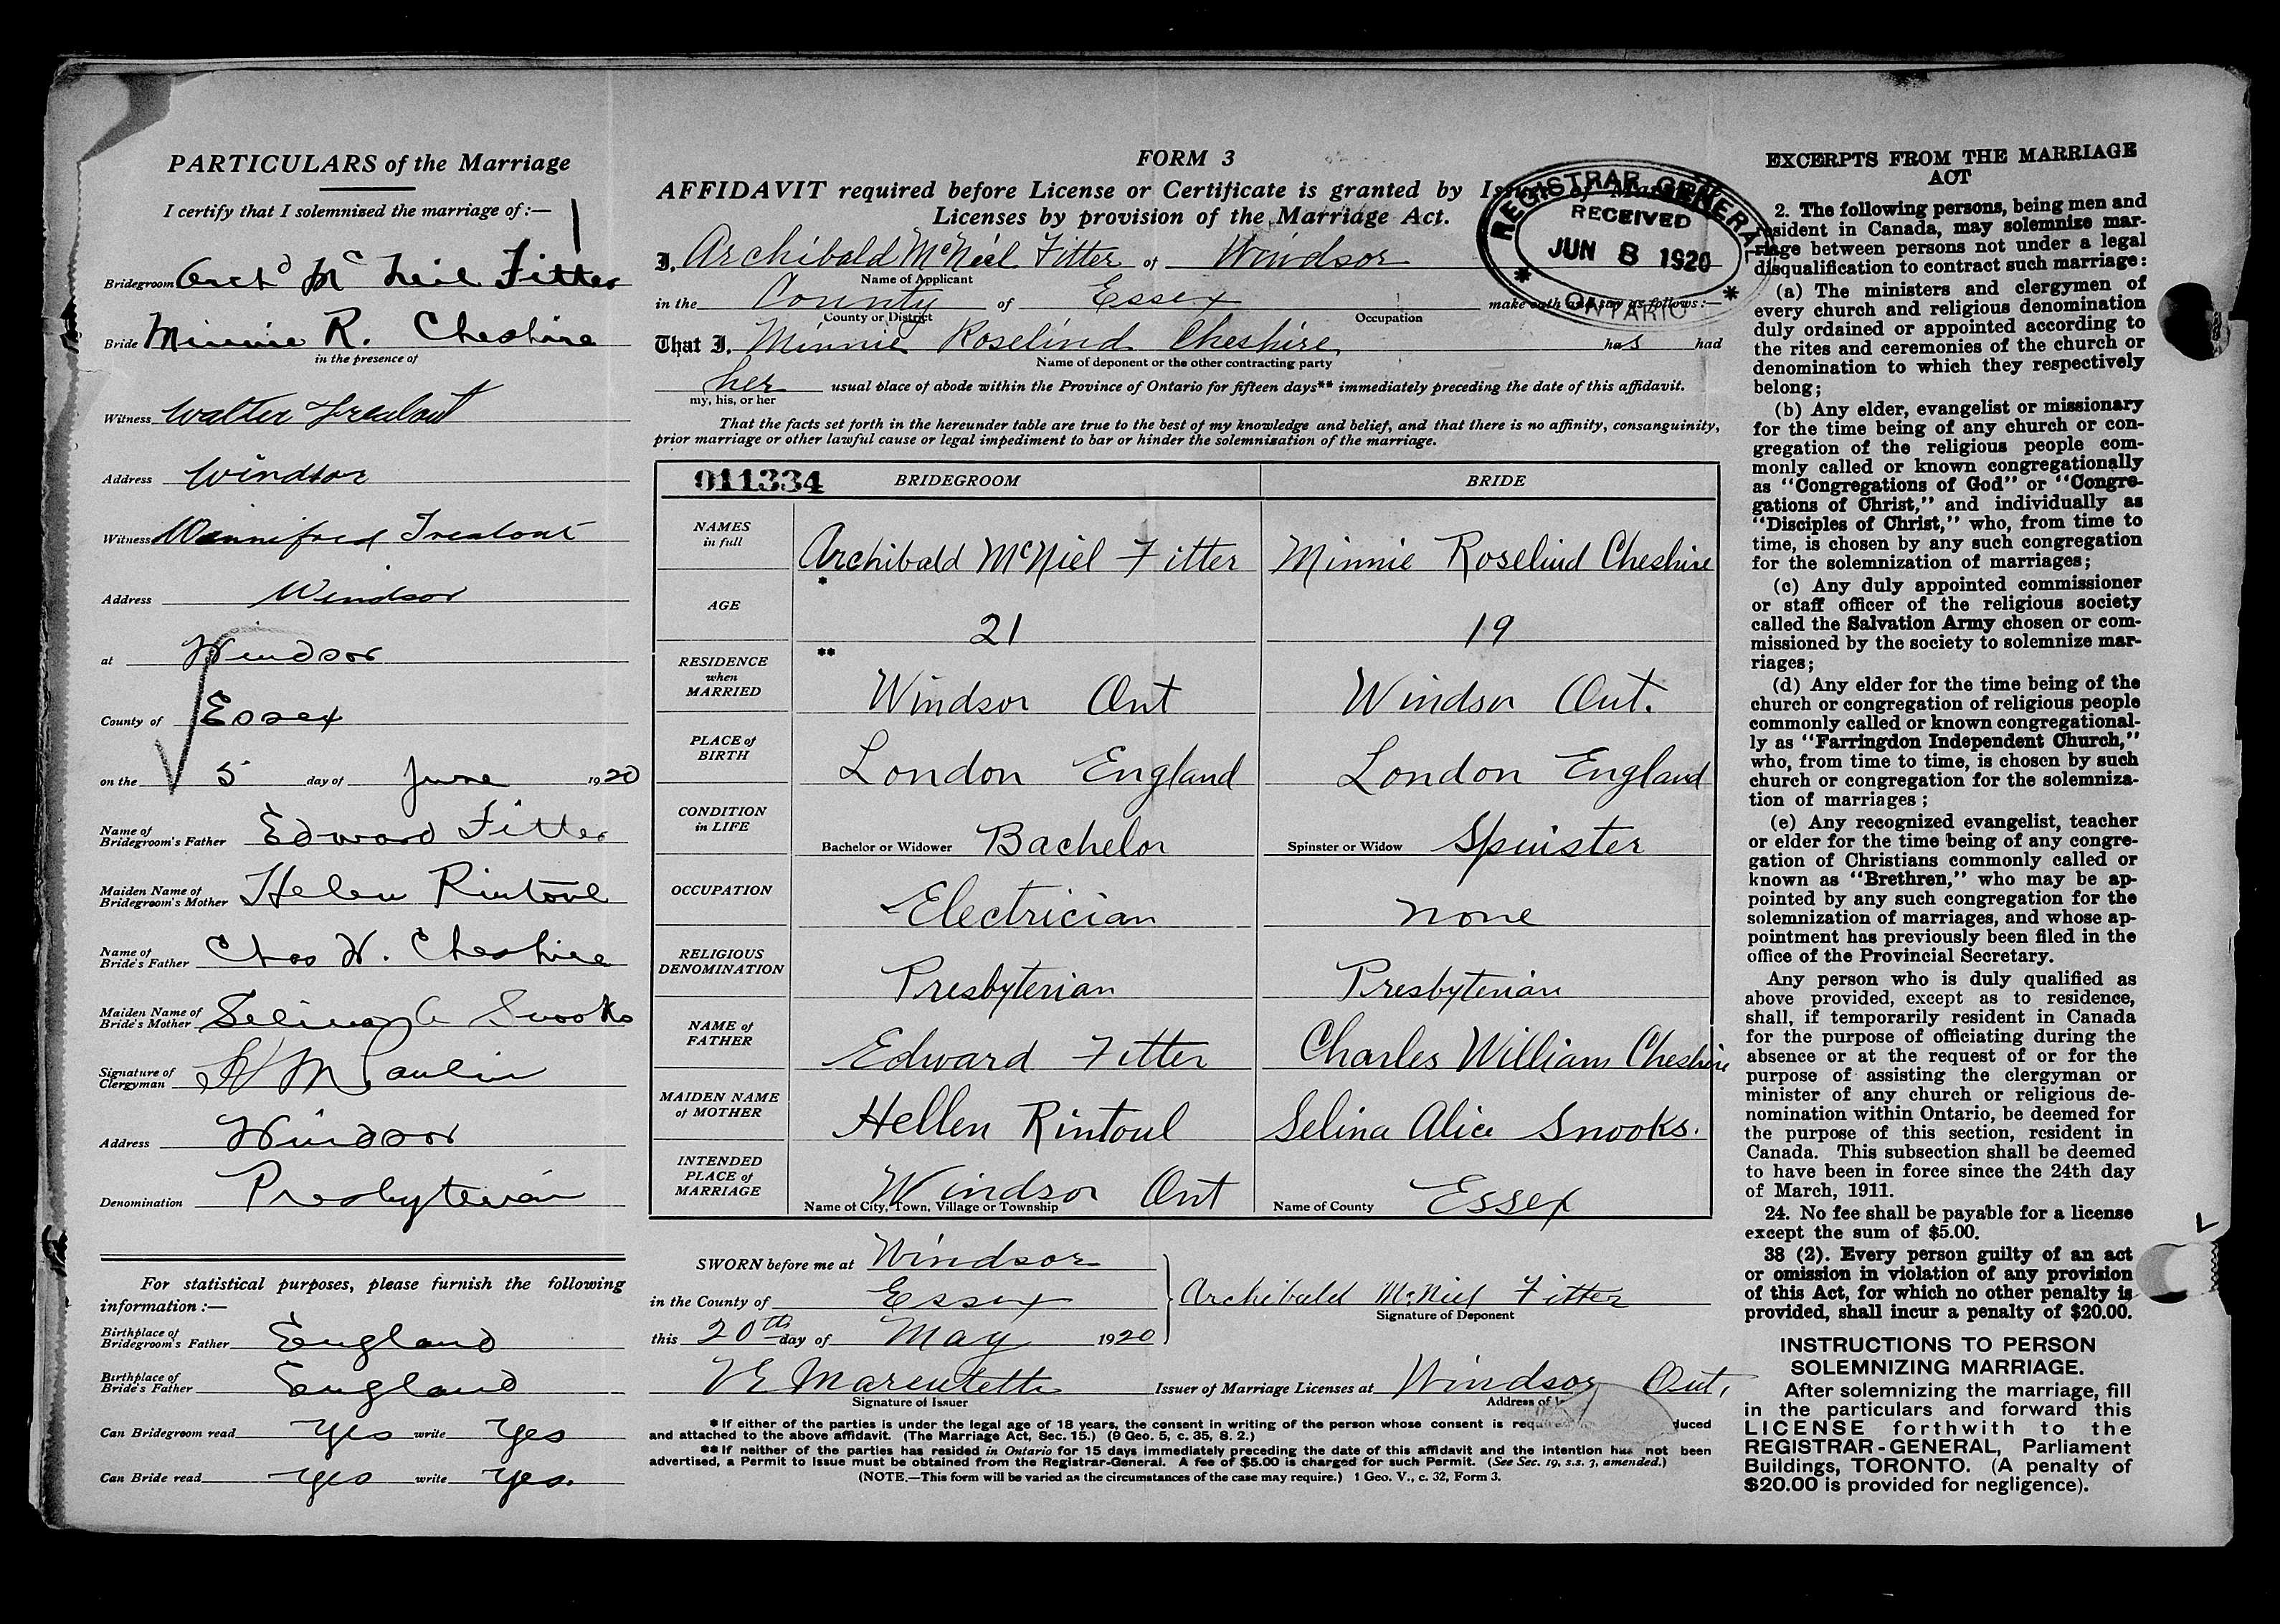 PARTICULARS of the Marriage
I certify that I solemnized the marriage of:—
Bridegroom Archd Mc Neil Fitter
Bride Minnie R. Cheshire
in the presence of
Witness Walter
Address Windsor
Witness Winnifred
Address Windsor
at Windsor
County of Essex
on the 5 day of June 1920
Name of Bridegroom's Father Edward Fitter
Maiden Name of Bridegroom's Mother Helen Rintoul
Name of Bride's Father Chas W. Cheshire
Maiden Name of Bride's Mother Selina A Snooks
Signature of Clergyman H M Paulin
Address Windsor
Denomination Presbyterian
For statistical purposes, please furnish the following
information:—
Birthplace of Bridegroom's Father England
Birthplace of Bride's Father England
Can Bridegroom read yes write yes
Can Bride read yes write yes.
FORM 3
AFFIDAVIT required before License or Certificate is granted by Issuer of Marriage
Licenses by provision of the Marriage Act.
REGISTRAR GENERAL
RECEIVED
JUN 8 1920
* ONTARIO *
I, Archibald McNiel Fitter of Windsor
Name of Applicant
in the County of Essex make oath and say as follows:—
County or District Occupation
That I, Minnie Roselind Cheshire, has had
Name of deponent or the other contracting party
her usual place of abode within the Province of Ontario for fifteen days** immediately preceding the date of this affidavit.
my, his, or her
That the facts set forth in the hereunder table are true to the best of my knowledge and belief, and that there is no affinity, consanguinity,
prior marriage or other lawful cause or legal impediment to bar or hinder the solemnization of the marriage.
011334 BRIDEGROOM BRIDE
NAMES in full Archibald McNiel Fitter Minnie Roselind Cheshire
*
AGE 21 19
**
RESIDENCE when MARRIED Windsor Ont Windsor Ont.
PLACE of BIRTH London England London England
CONDITION in LIFE Bachelor or Widower Bachelor Spinster or Widow Spinster
OCCUPATION Electrician none
RELIGIOUS DENOMINATION Presbyterian Presbyterian
NAME of FATHER Edward Fitter Charles William Cheshire
MAIDEN NAME of MOTHER Hellen Rintoul Selina Alice Snooks.
INTENDED PLACE of MARRIAGE Windsor Ont Name of County Essex
Name of City, Town, Village or Township
SWORN before me at Windsor
in the County of Essex
this 20th day of May 1920
Archibald McNiel Fitter
Signature of Deponent
VE Marentette Issuer of Marriage Licenses at Windsor Ont,
Signature of Issuer Address of
* If either of the parties is under the legal age of 18 years, the consent in writing of the person whose consent is required duced
and attached to the above affidavit. (The Marriage Act, Sec. 15.) (9 Geo. 5, c. 35, S. 2.)
** If neither of the parties has resided in Ontario for 15 days immediately preceding the date of this affidavit and the intention has not been
advertised, a Permit to Issue must be obtained from the Registrar-General. A fee of $5.00 is charged for such Permit. (See Sec. 19, s.s. 3, amended.)
(NOTE.—This form will be varied as the circumstances of the case may require.) 1 Geo. V., c. 32, Form 3.
EXCERPTS FROM THE MARRIAGE
ACT
2. The following persons, being men and
resident in Canada, may solemnize mar-
riage between persons not under a legal
disqualification to contract such marriage:
(a) The ministers and clergymen of
every church and religious denomination
duly ordained or appointed according to
the rites and ceremonies of the church or
denomination to which they respectively
belong;
(b) Any elder, evangelist or missionary
for the time being of any church or con-
gregation of the religious people com-
monly called or known congregationally
as "Congregations of God" or "Congre-
gations of Christ," and individually as
"Disciples of Christ," who, from time to
time, is chosen by any such congregation
for the solemnization of marriages;
(c) Any duly appointed commissioner
or staff officer of the religious society
called the Salvation Army chosen or com-
missioned by the society to solemnize mar-
riages;
(d) Any elder for the time being of the
church or congregation of religious people
commonly called or known congregational-
ly as "Farringdon Independent Church,"
who, from time to time, is chosen by such
church or congregation for the solemniza-
tion of marriages;
(e) Any recognized evangelist, teacher
or elder for the time being of any congre-
gation of Christians commonly called or
known as "Brethren," who may be ap-
pointed by any such congregation for the
solemnization of marriages, and whose ap-
pointment has previously been filed in the
office of the Provincial Secretary.
Any person who is duly qualified as
above provided, except as to residence,
shall, if temporarily resident in Canada
for the purpose of officiating during the
absence or at the request of or for the
purpose of assisting the clergyman or
minister of any church or religious de-
nomination within Ontario, be deemed for
the purpose of this section, resident in
Canada. This subsection shall be deemed
to have been in force since the 24th day
of March, 1911.
24. No fee shall be payable for a license
except the sum of $5.00.
38 (2). Every person guilty of an act
or omission in violation of any provision
of this Act, for which no other penalty is
provided, shall incur a penalty of $20.00.
INSTRUCTIONS TO PERSON
SOLEMNIZING MARRIAGE.
After solemnizing the marriage, fill
in the particulars and forward this
LICENSE forthwith to the
REGISTRAR-GENERAL, Parliament
Buildings, TORONTO. (A penalty of
$20.00 is provided for negligence).